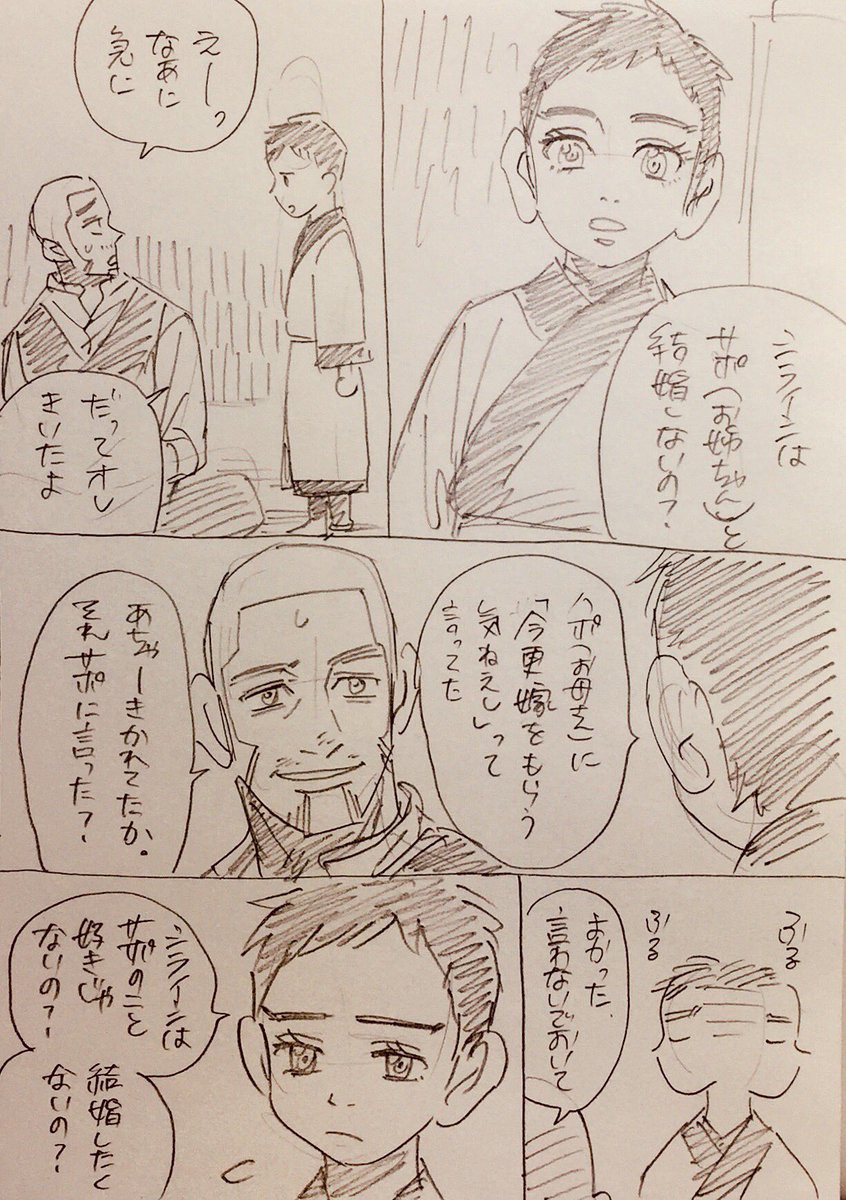 シライシは
サポ(お姉ちゃん)と
結婚しないの?
えーっ
なあに
急に
だってオレ
きいたよ
ハポ(お母さん)に
「今更嫁をもらう
気ねえし」って
言ってた
あちゃーきかれてたか。
それサポに言った?
ふる
ふる
よかった、
言わないでおいて
シライシは
サポのこと
好きじゃ
ないの?
結婚したく
ないの?